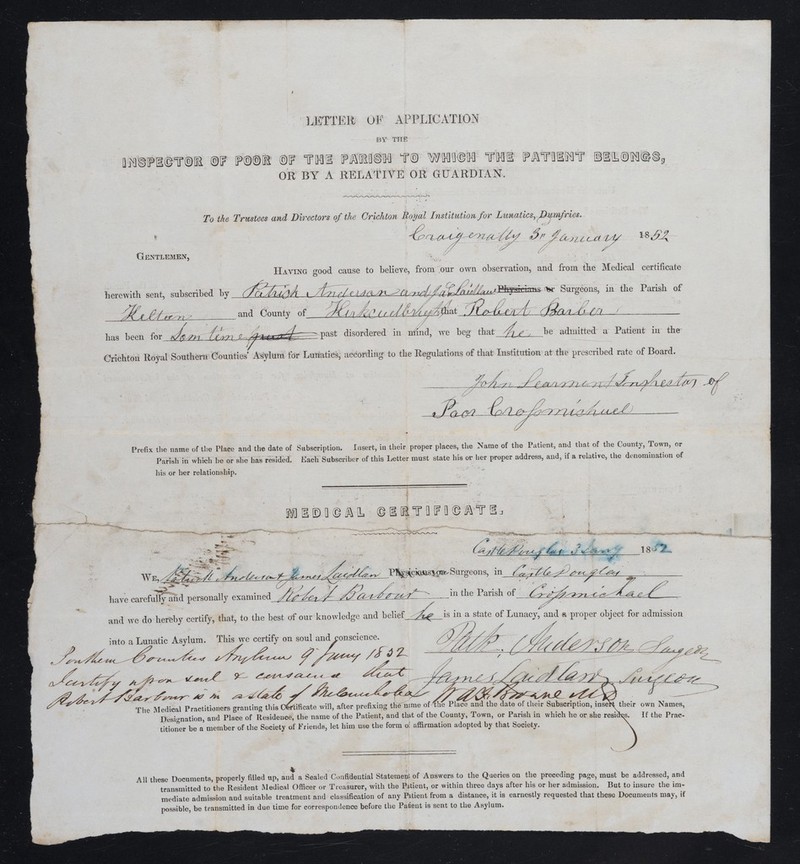 LETTER OF APPLICATION
BY THE
INSPECTOR OF POOR OF THE PARISH TO WHICH THE PATIENT BELONGS,
OR BY A RELATIVE OR GUARDIAN.
To the Trustees and Directors of the Crichton Royal Institution for Lunatics, Dumfries.
3 January 1852
GENTLEMEN,
HAVING good cause to believe, from our own observation, and from the Medical certificate
herewith sent, subscribed by Patrick Anderson and Jas Laidlaw Physicians or Surgeons, in the Parish of
Kelton and County of Kirkcudbright that Robert Barber
has been for Som time past disordered in mind, we beg that he be admitted a Patient in the
Crichton Royal Southern Counties' Asylum for Lunatics, according to the Regulations of that Institution at the prescribed rate of Board.
John Learmont Inspector of
Poor Crossmichael
Prefix the name of the Place and the date of Subscription. Insert, in their proper places, the Name of the Patient, and that of the County, Town, or
Parish in which he or she has resided. Each Subscriber of this Letter must state his or her proper address, and, if a relative, the denomination of
his or her relationship.
MEDICAL CERTIFICATE.
Castle Douglas 3 Jany 1852
WE, Patrick Anderson & James Laidlaw Physicians or Surgeons, in Castle Douglas
have carefully and personally examined Robert Barbour in the Parish of Crossmichael
and we do hereby certify, that, to the best of our knowledge and belief he is in a state of Lunacy, and a proper object for admission
into a Lunatic Asylum. This we certify on soul and conscience.
Patk. Anderson Surgeon
Southern Counties Asylum 9 Jany 1852
I certify upon soul & conscience that
James Laidlaw Surgeon
Robert Barbour is in a state of Melancholia W.A.F. Browne MD
The Medical Practitioners granting this Certificate will, after prefixing the name of the Place and the date of their Subscription, insert their own Names,
Designation, and Place of Residence, the name of the Patient, and that of the County, Town, or Parish in which he or she resides. If the Prac-
titioner be a member of the Society of Friends, let him use the form of affirmation adopted by that Society.
All these Documents, properly filled up, and a Sealed Confidential Statement of Answers to the Queries on the preceding page, must be addressed, and
transmitted to the Resident Medical Officer or Treasurer, with the Patient, or within three days after his or her admission. But to insure the im-
mediate admission and suitable treatment and classification of any Patient from a distance, it is earnestly requested that these Documents may, if
possible, be transmitted in due time for correspondence before the Patient is sent to the Asylum.